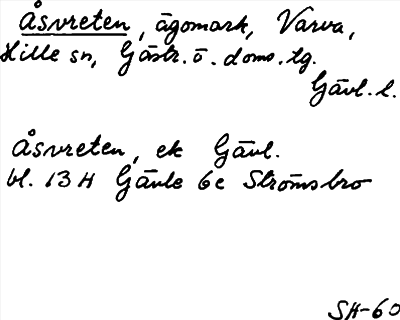 Åsvreten, ägomark, Varva,
Hille sn, Gästr. ö. doms. tg.
Gävl. l.
Åsvreten, ek Gävl.
bl. 13 H Gävle 6c Strömsbro
SH-60